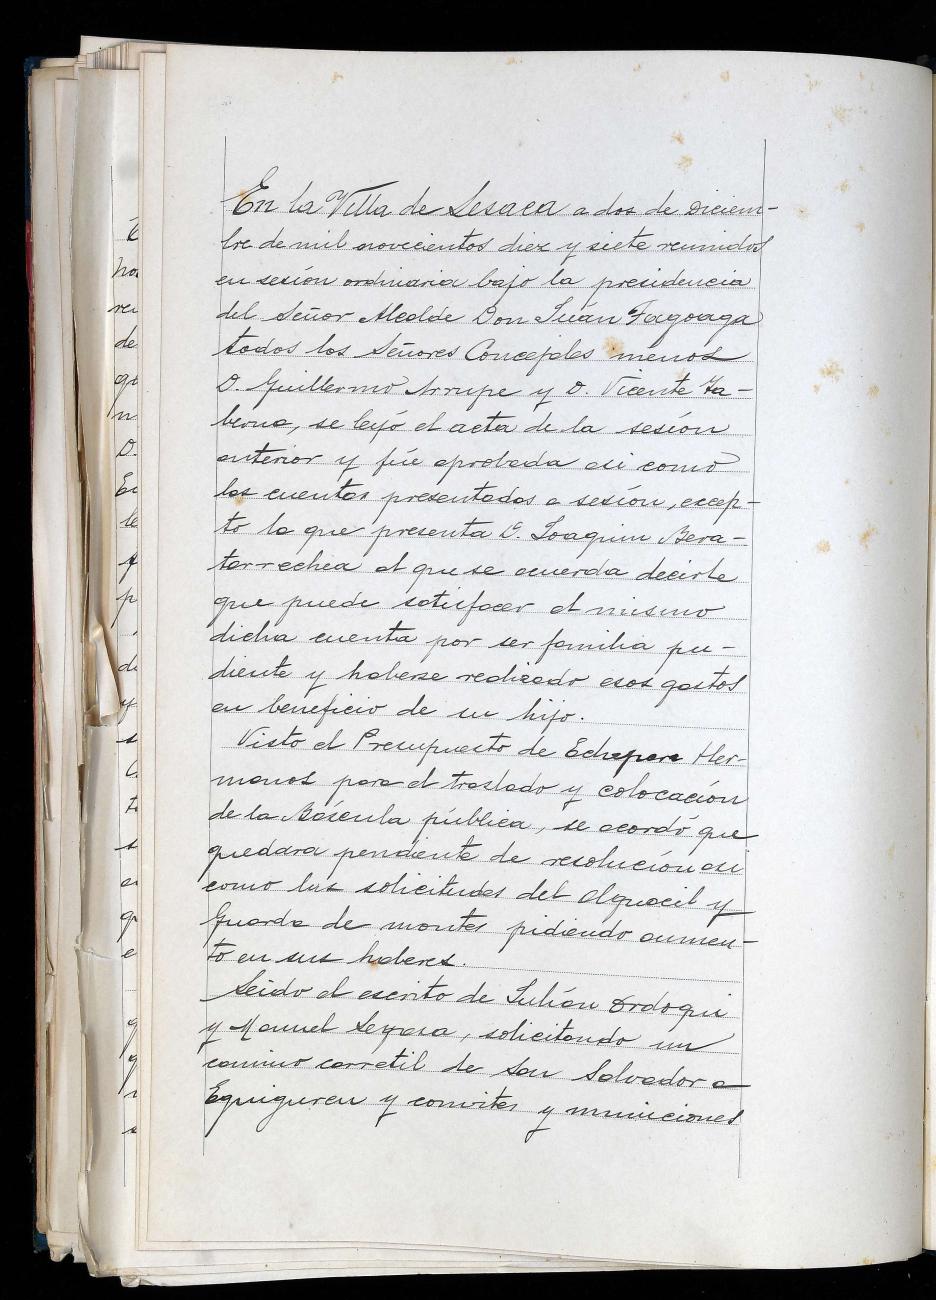 En la Villa de Lesaca a dos de Diciem-
bre de mil novecientos diez y siete reunidos
en sesión ordinaria bajo la presidencia
del Señor Alcalde Don Juan Fagoaga
todos los Señores Concejales menos
D. Guillermo Arrupe y D. Vicente Ta-
berna, se leyó el acta de la sesión
anterior y fué aprobada asi como
las cuentas presentadas a sesión, excep-
to la que presenta D. Joaquin Bera-
tarrechea al que se acuerda decirle
que puede satisfacer el mismo
dicha cuenta por ser familia pu-
diente y haberse realizado esos gastos
en beneficio de su hijo.
Visto el Presupuesto de Echepare Her-
manos para el traslado y colocación
de la Báscula pública, se acordó que
quedara pendiente de resolución asi
como las solicitudes del Alguacil y
Guarda de montes pidiendo aumen-
to en sus haberes.
Leido el escrito de Julián Ordoqui
y Manuel, solicitando un
camino carretil de San Salvador a
Eguiguren y convites y municiones